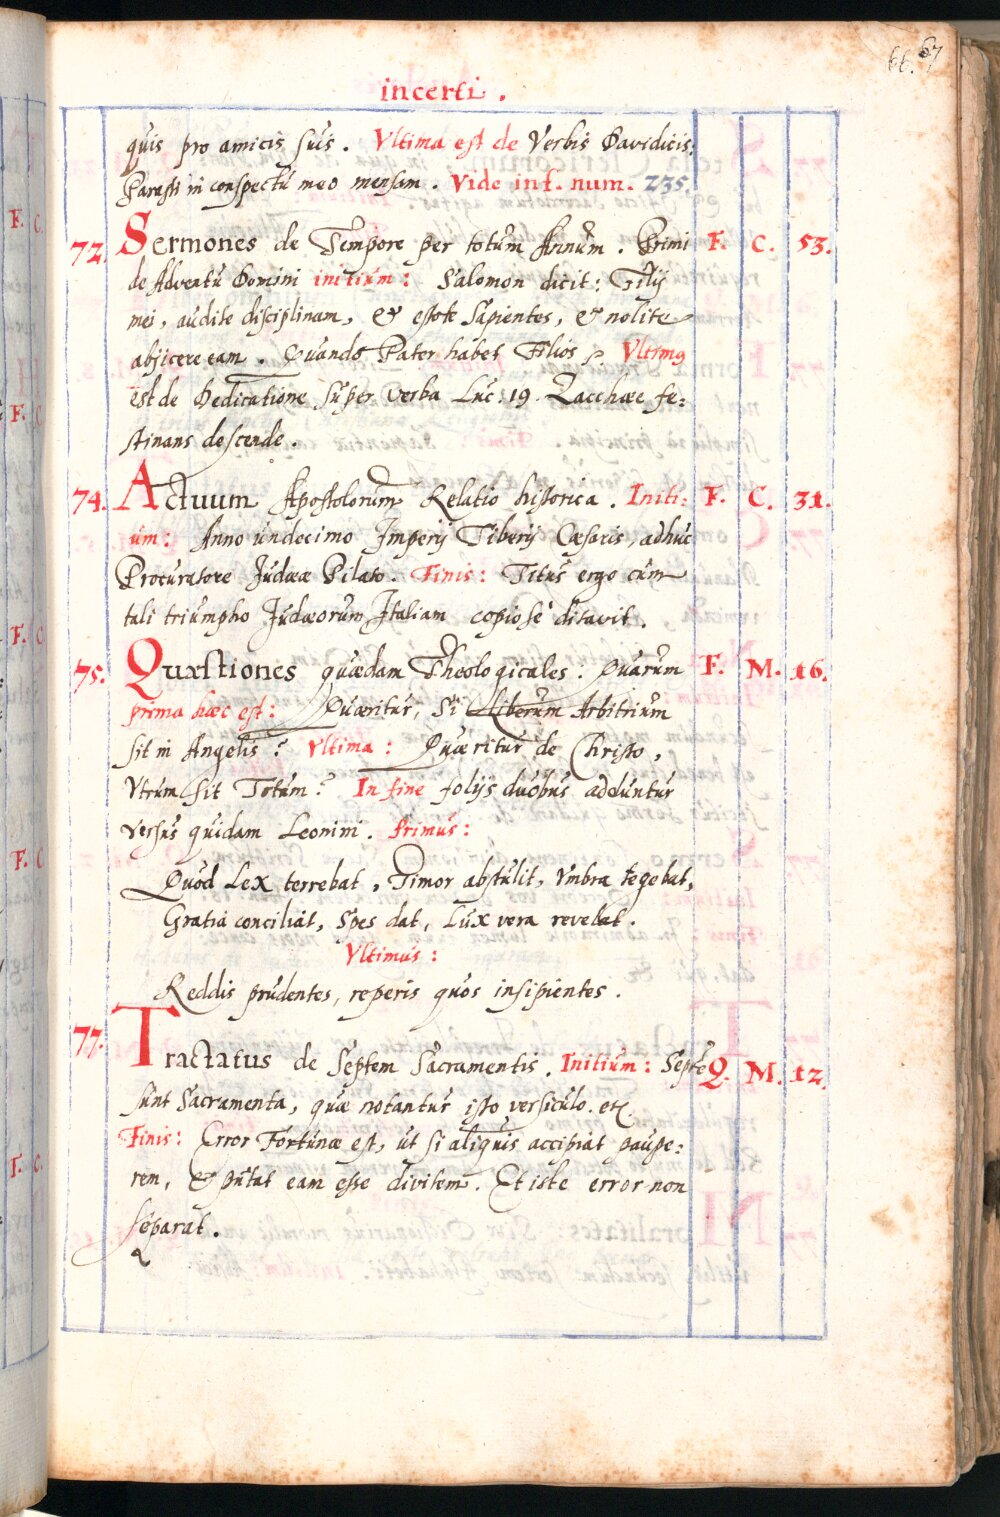 66. 67
incerti.
quis pro amicis suis. Vltima est de Verbis Davidicis.
Parasti in conspectu meo mensam. Vide inf. num. 235.
72. Sermones de Tempore per totum Annum. Primi F. C. 53.
de Adventu Domini initium: Salomon dicit: Filij
mei, audite disciplinam, & estote sapientes, & nolite
abjicere eam. Quando Pater habet Filios Vltimus
est de Dedicatione super verba Luc: 19. Zacchæe fe:
stinans descende.
74. Actuum Apostolorum Relatio historica. Initi: F. C. 31.
um: Anno undecimo Imperij Tiberij Cæsaris, adhuc
Procuratore Judææ Pilato. Finis: Titus ergo cum
tali triumpho Judæorum Italiam copiose ditavit.
75. Quæstiones quædam Theologicales: Quarum F. M. 16.
prima hæc est: Quæritur, Si Liberum Arbitrium
sit in Angelis? Vltima: Quæritur de Christo,
Vtrum sit Totum? In fine folijs duobus adduntur
versus quidam Leonini. Primus:
Quod Lex terrebat, Timor abstulit, Vmbra tegebat,
Gratia conciliat, Spes dat, Lux vera revelat.
Vltimus:
Reddis prudentes, reperis quos insipientes.
77. Tractatus de Septem Sacramentis. Initium: Septē Q. M. 12.
sunt Sacramenta, quæ notantur isto versiculo. etc.
Finis: Error Fortunæ est, ut si aliquis accipiat paupe:
rem, & putat eam esse divitem. Et iste error non
separat.